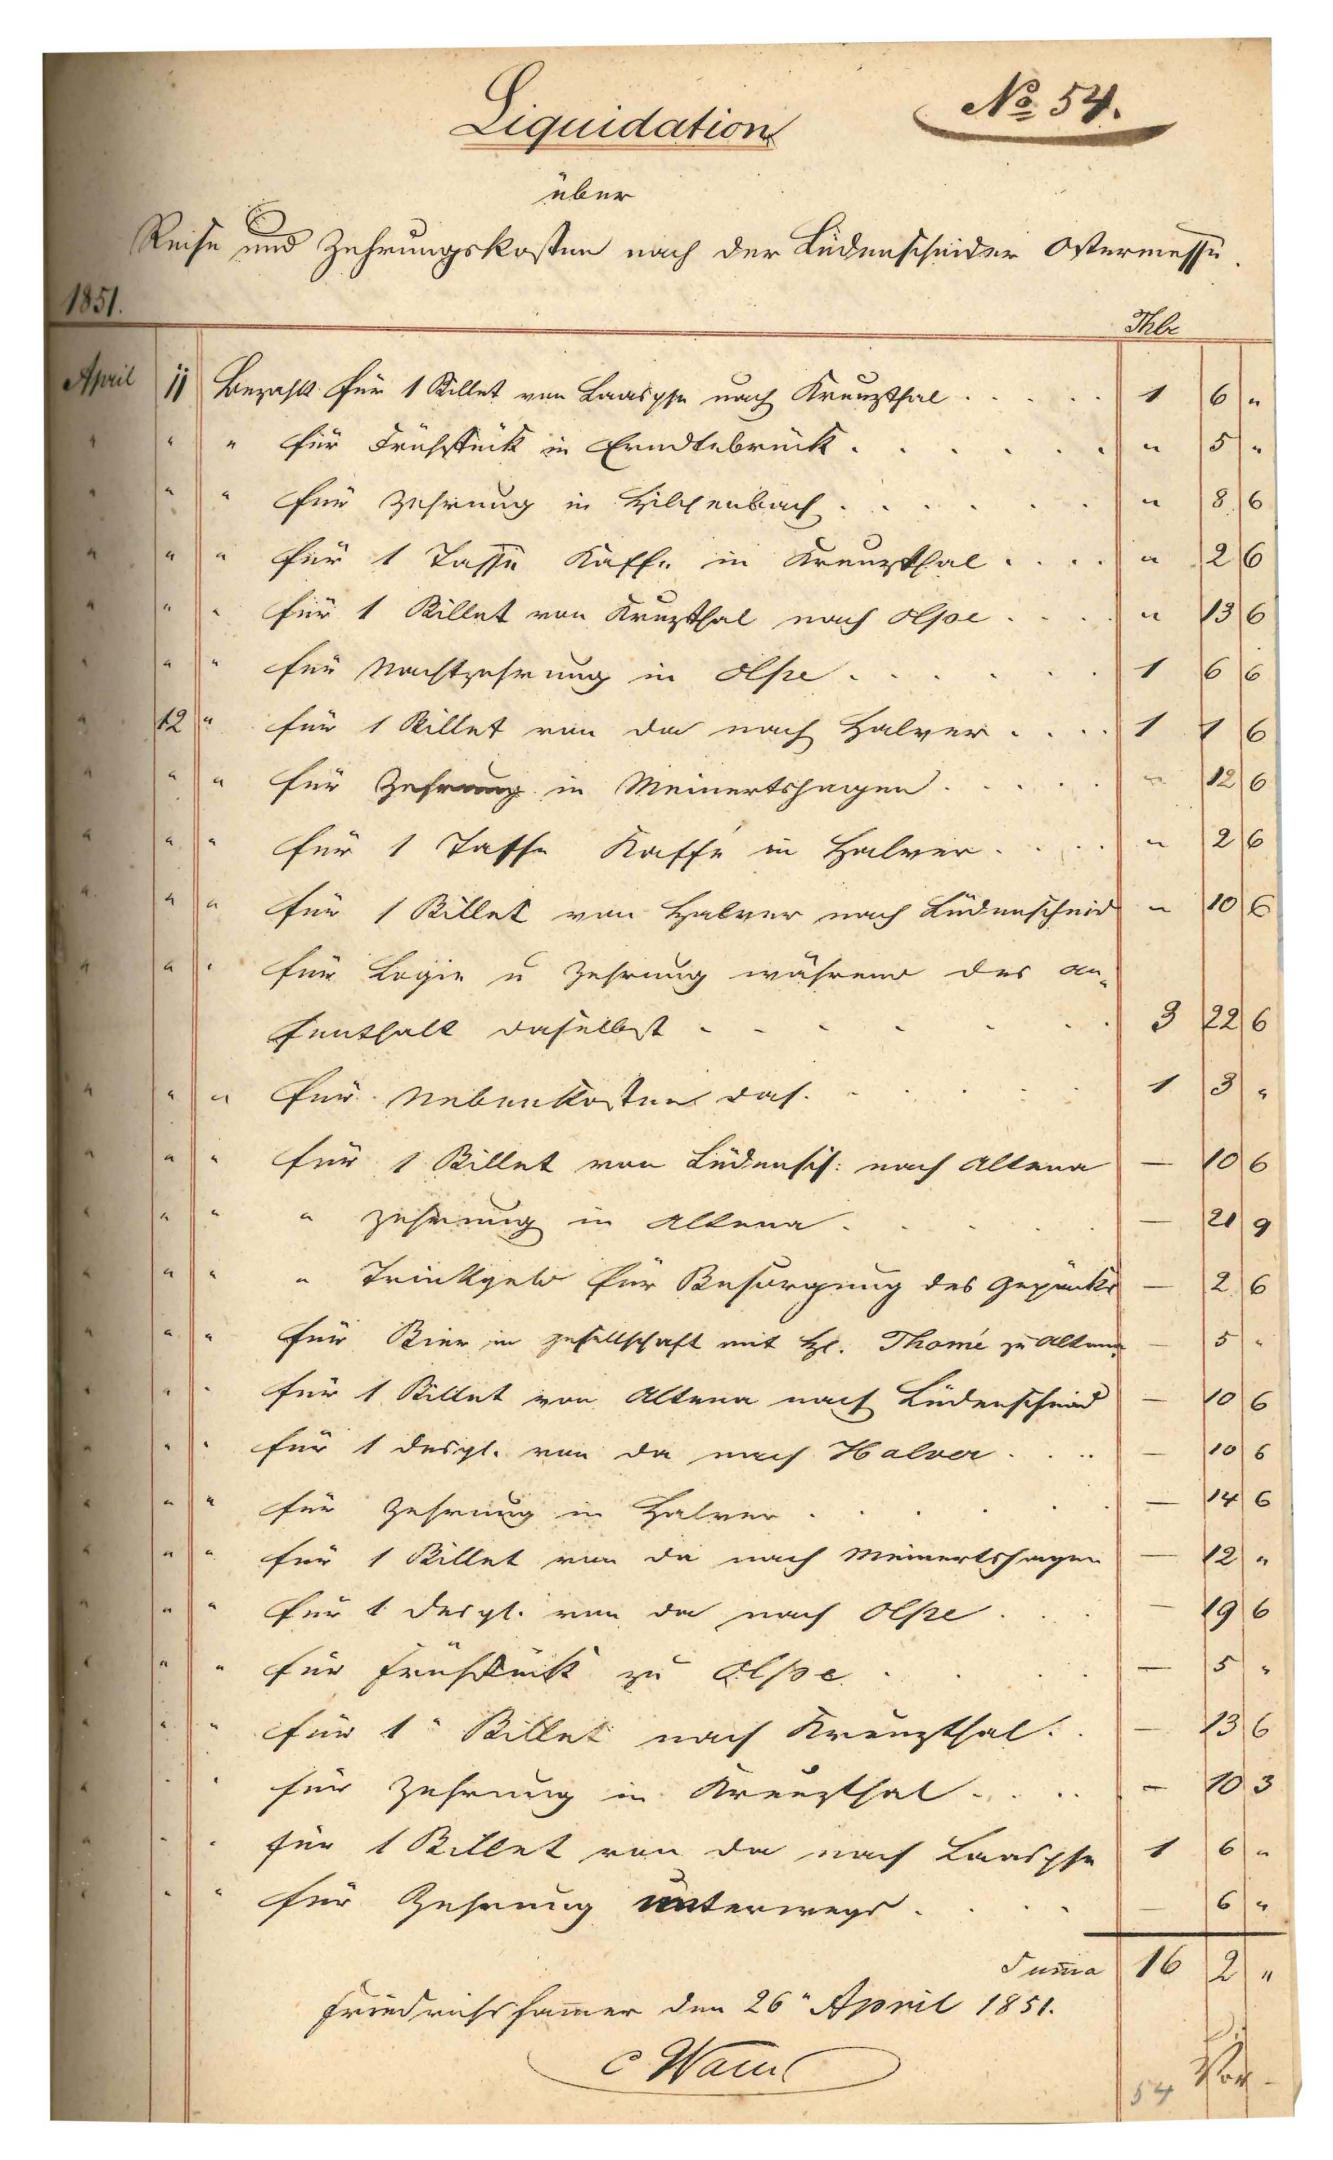 Liquidation
No 54.
über
Reise und Zehrungskosten nach der Lüdenscheider Ostermesse.
1851.
Thlr
April 11 Bezahlt für 1 Billet von Laasphe nach Kreuzthal . . . . . 1 6 "
" " " für Frühstück in Erndtebrück . . . . . . " 5 "
" " " für Zehrung in Hilchenbach . . . . . . " 8 6
" " " für 1 Tasse Kaffe in Kreuzthal . . . . " 2 6
" " " für 1 Billet von Kreuzthal nach Olpe . . . . " 13 6
" " " für Nachtzehrung in Olpe . . . . . . 1 6 6
" 12 " für 1 Billet von da nach Halver . . . . 1 1 6
" " " für Zehrung in Meinertshagen . . . . . " 12 6
" " " für 1 Tasse Kaffé in Halver . . . . " 2 6
" " " für 1 Billet von Halver nach Lüdenscheid " 10 6
" " " für Logie u Zehrung während des au-
fenthalt daselbst - - - - - . . 3 22 6
" " " für Nebenkosten das. . . . . . 1 3 "
" " " für 1 Billet von Lüdensch: nach Altena — 10 6
" " " " Zehrung in Altena . . . . . — 21 9
" " " " Trinkgeld für Besorgung des Gepäcks — 2 6
" " " für Bier in gesellschaft mit H. Thomé zu Altena — 5 "
" " " für 1 Billet von Altena nach Lüdenscheid — 10 6
" " " für 1 desgl. von da nach Halver . . .. — 10 6
" " " für Zehrung in Halver . . . . . . — 14 6
" " " für 1 Billet von da nach Meinertshagen — 12 "
" " " für 1 desgl. von da nach Olpe . . . — 19 6
" " " für Frühstück zu Olpe . . . . — 5 "
" " " für 1 " Billet nach Kreuzthal . . — 13 6
" " " für Zehrung in Kreuzthal . . . . — 10 3
" " " für 1 Billet von da nach Laasphe 1 6 "
" " " für Zehrung unterwegs . . . . — 6 "
Summa 16 2 "
Friedrichshammer den 26" April 1851.
54